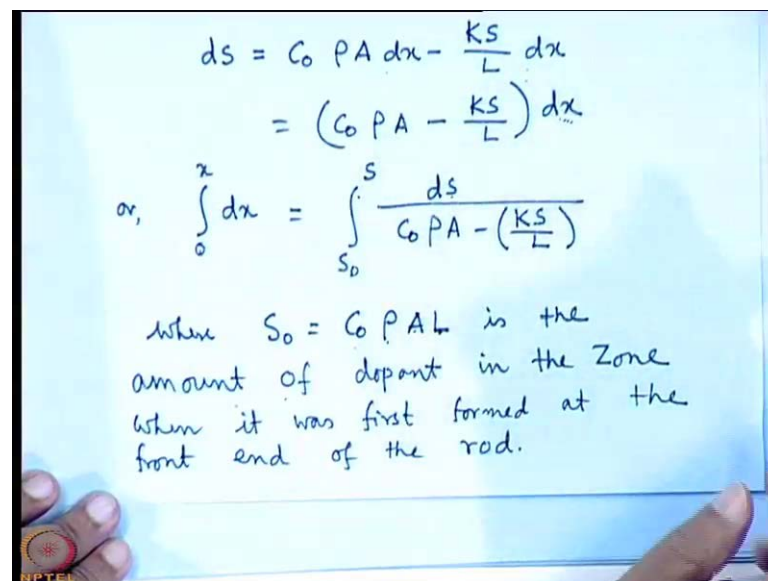 ds = C₀ ρA dx - KS/L dx
= (C₀ ρA - KS/L) dx
or, ∫₀ˣ dx = ∫_{S₀}^{S} ds / (C₀ ρA - (KS/L))
where S₀ = C₀ ρAL is the
amount of dopant in the Zone
when it was first formed at the
front end of the rod.
NPTEL